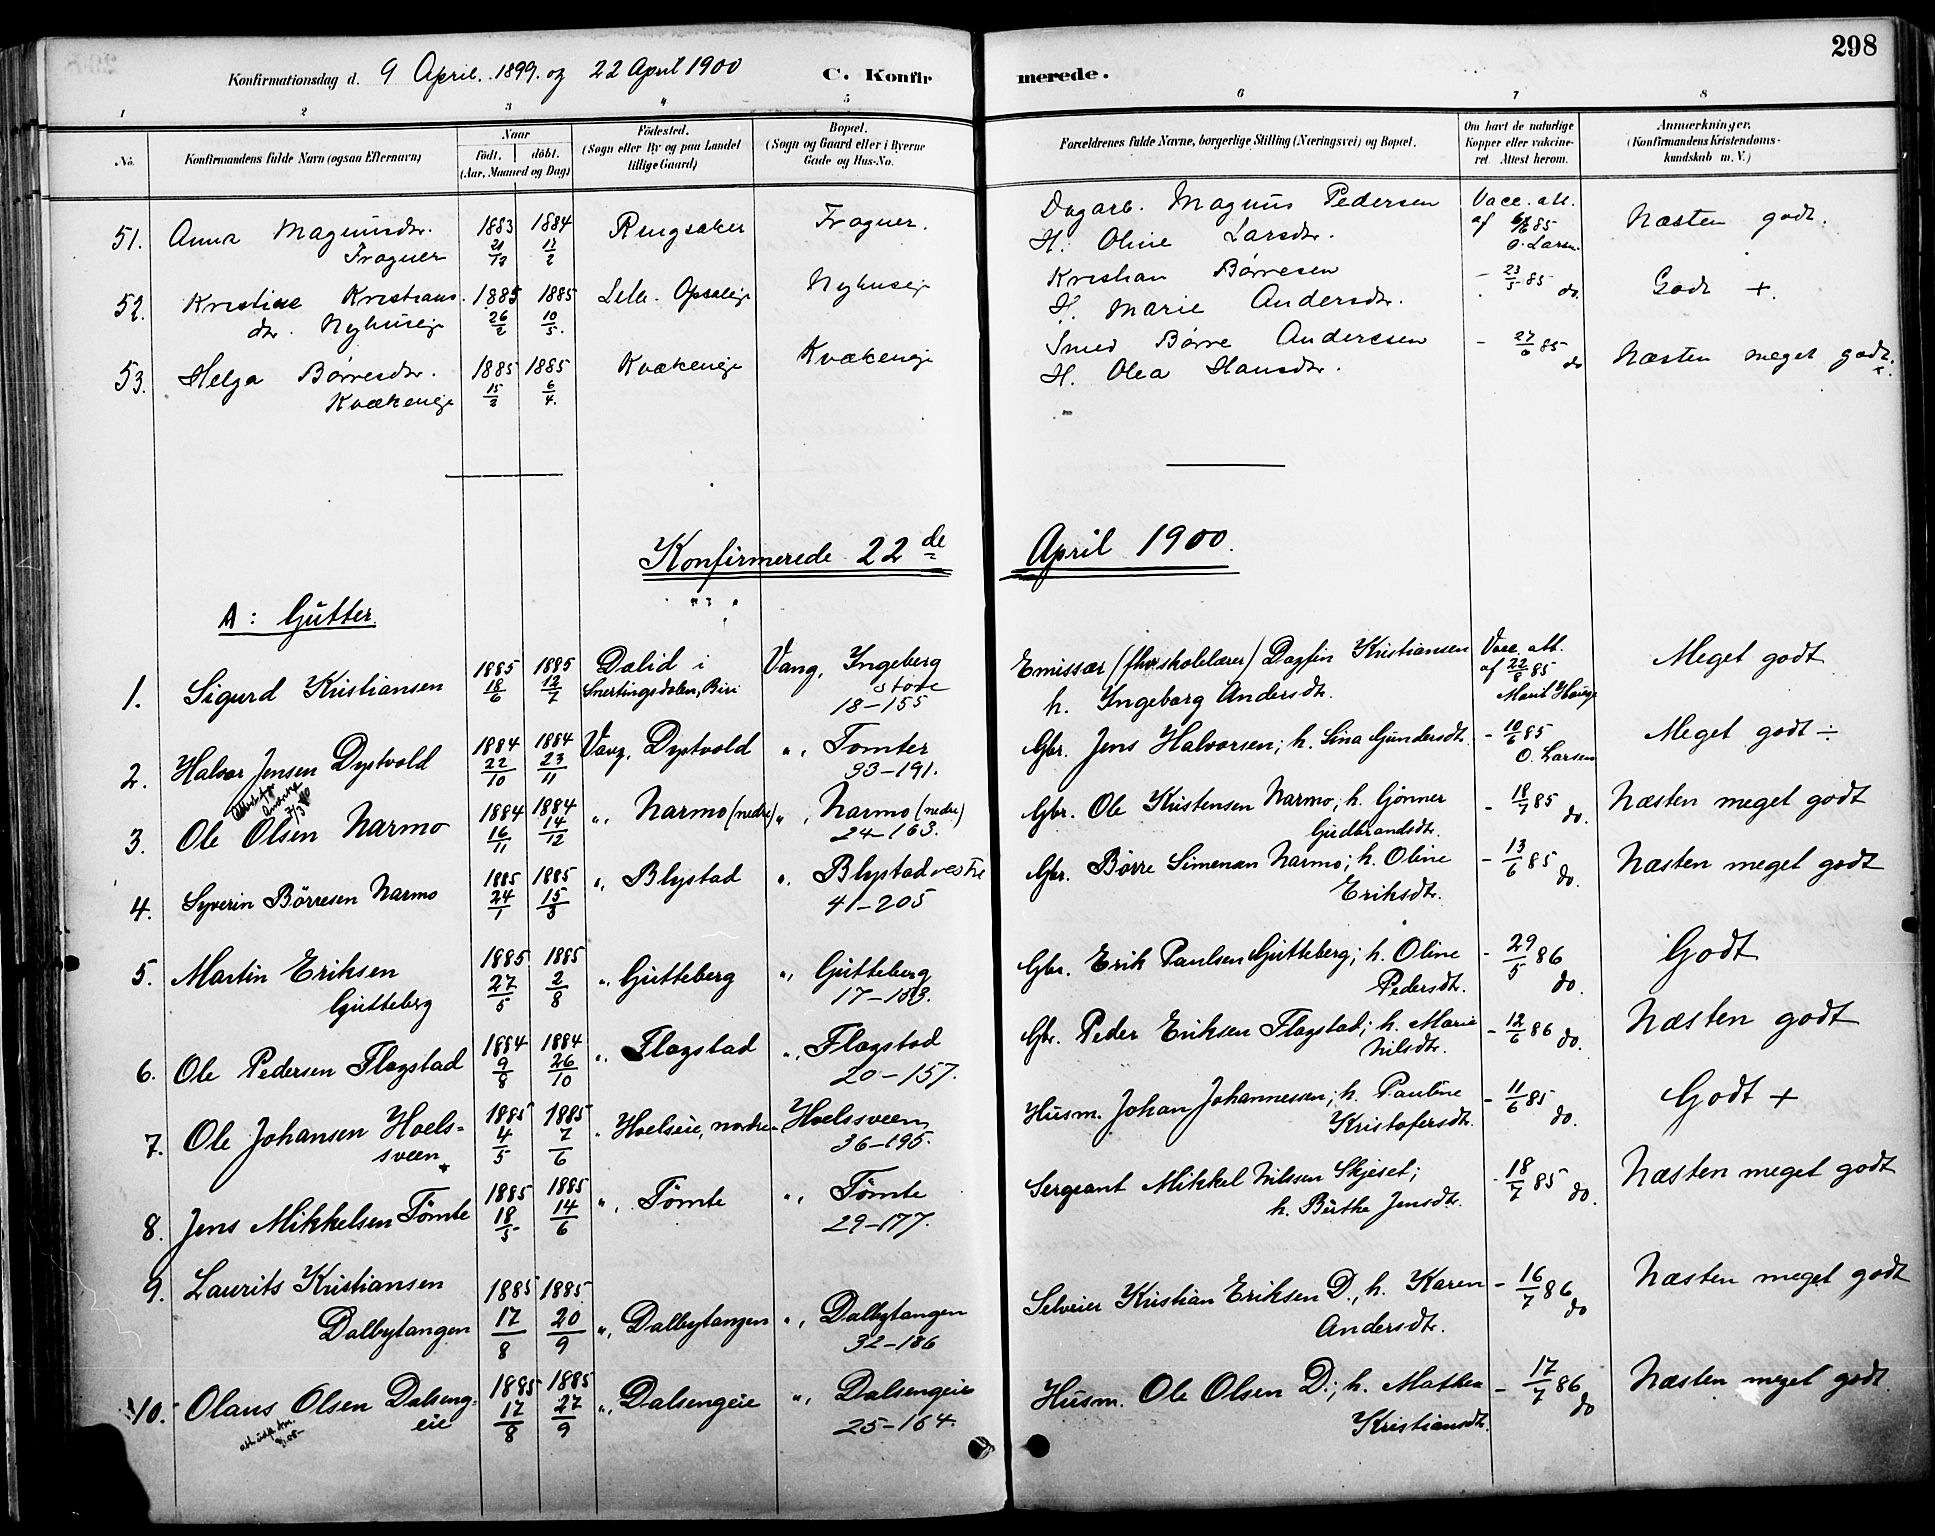 298
Konfirmationsdag d. 9 April 1899 og 22 April 1900 C. Konfirmerede.
1 2 3 4 5 6 7 8
No. Konfirmandens fulde Navn (ogsaa Efternavn) Naar født. døbt. (Aar, Maaned og Dag) Fødested. (Sogn eller By og paa Landet tillige Gaard) Bopæl. (Sogn og Gaard eller i Byerne Gade og Hus-No. Forældrenes fulde Navne, borgerlige Stilling (Næringsvei) og Bopæl. Om havt de naturlige Kopper eller vakcineret. Attest herom. Anmærkninger. (Konfirmandens Kristendomskundskab m. V.)
51. Anna Magnusdtr. 1883 1884 Ringsaker Fragner. Dagarb. Magnus Pedersen Vacc. att. Næsten godt.
Fragner 21/12 17/2 H. Oline Larsdtr. af 6/6 85 O. Larsen
52. Kristine Kristians- 1885 1885 Opsaleje Nyhuseje Kristian Børresen - 23/5 85 do. Godt +.
dtr. Nyhuseje 26/2 10/5. H. Marie Andersdtr.
53. Helga Børresdtr. 1885 1885 Kvækeneje Kvækeneje Smed Børre Andersen - 27/6 85 do Næsten meget godt.
Kvækeneje 15/2 6/4. H. Olea Hansdtr. +.
Konfirmerede 22de April 1900.
A: Gutter.
1. Sigurd Kristiansen 1885 18/6 1885 12/7 Dalid i Vang, Ingeberg Emissær Dagfin Kristiansen Vacc. att. Meget godt
Snertingsdalen, Biri store 18-155 h. Ingeborg Andersdtr. af 22/8 85 Marit Hauge
2. Halvor Jensen Dystvold 1884 22/10 1884 23/11 Vang, Dystvold " Tomter 33-191. Gbr. Jens Halvorsen; h. Lina Gundersdtr. - 10/6 85 O. Larsen Meget godt ÷
3. Ole Olsen Narmo 1884 16/11 1884 14/12 " Narmo (nedre) " Narmo (nedre) 24-163. Gbr. Ole Kristensen Narmo; h. Gjønner - 18/7 85 do. Næsten meget godt
Gudbrandsdtr.
4. Syverin Børresen Narmo 1885 24/1 1885 15/3 " Blystad " Blystad vestre 41-205 Gbr. Børre Simensen Narmo; h. Oline - 13/6 85 do. Næsten meget godt
Eriksdtr.
5. Martin Eriksen 1885 27/5 1885 2/8 " Gutteberg " Gutteberg Gbr. Erik Paulsen Gutteberg; h. Oline - 29/5 86 do. Godt
Gutteberg 17-153. Pedersdtr.
6. Ole Pedersen Flagstad 1884 9/8 1884 26/10 " Flagstad " Flagstad 20-157. Gbr. Peder Eriksen Flagstad; h. Marie - 12/6 86 do. Næsten godt
Nilsdtr.
7. Ole Johansen Hoels- 1885 4/5 1885 7/6 " Hoelseie, nordre - Hoelssveen Husm. Johan Johannessen; h. Pauline - 11/6 85 do. Godt +
sveen 36-195. Kristofersdtr.
8. Jens Mikkelsen Tømte 1885 18/5 1885 14/6 " Tømte " Tømte 29-177. Sergeant Mikkel Nilssen Skjeset; - 18/7 85 do. Næsten meget godt
h. Birthe Jensdtr.
9. Laurits Kristiansen 1885 17/8 1885 20/9 " Dalbytangen " Dalbytangen Selveier Kristian Eriksen D., h. Karen - 16/7 86 do Næsten meget godt
Dalbytangen 32-186 Andersdtr.
10. Olaus Olsen Dalseng- 1885 17/8 1885 27/9 " Dalsengeie " Dalsengeie Husm. Ole Olsen D.; h. Mathea - 17/7 86 do Næsten meget godt
eie 25-164. Kristiansdtr.